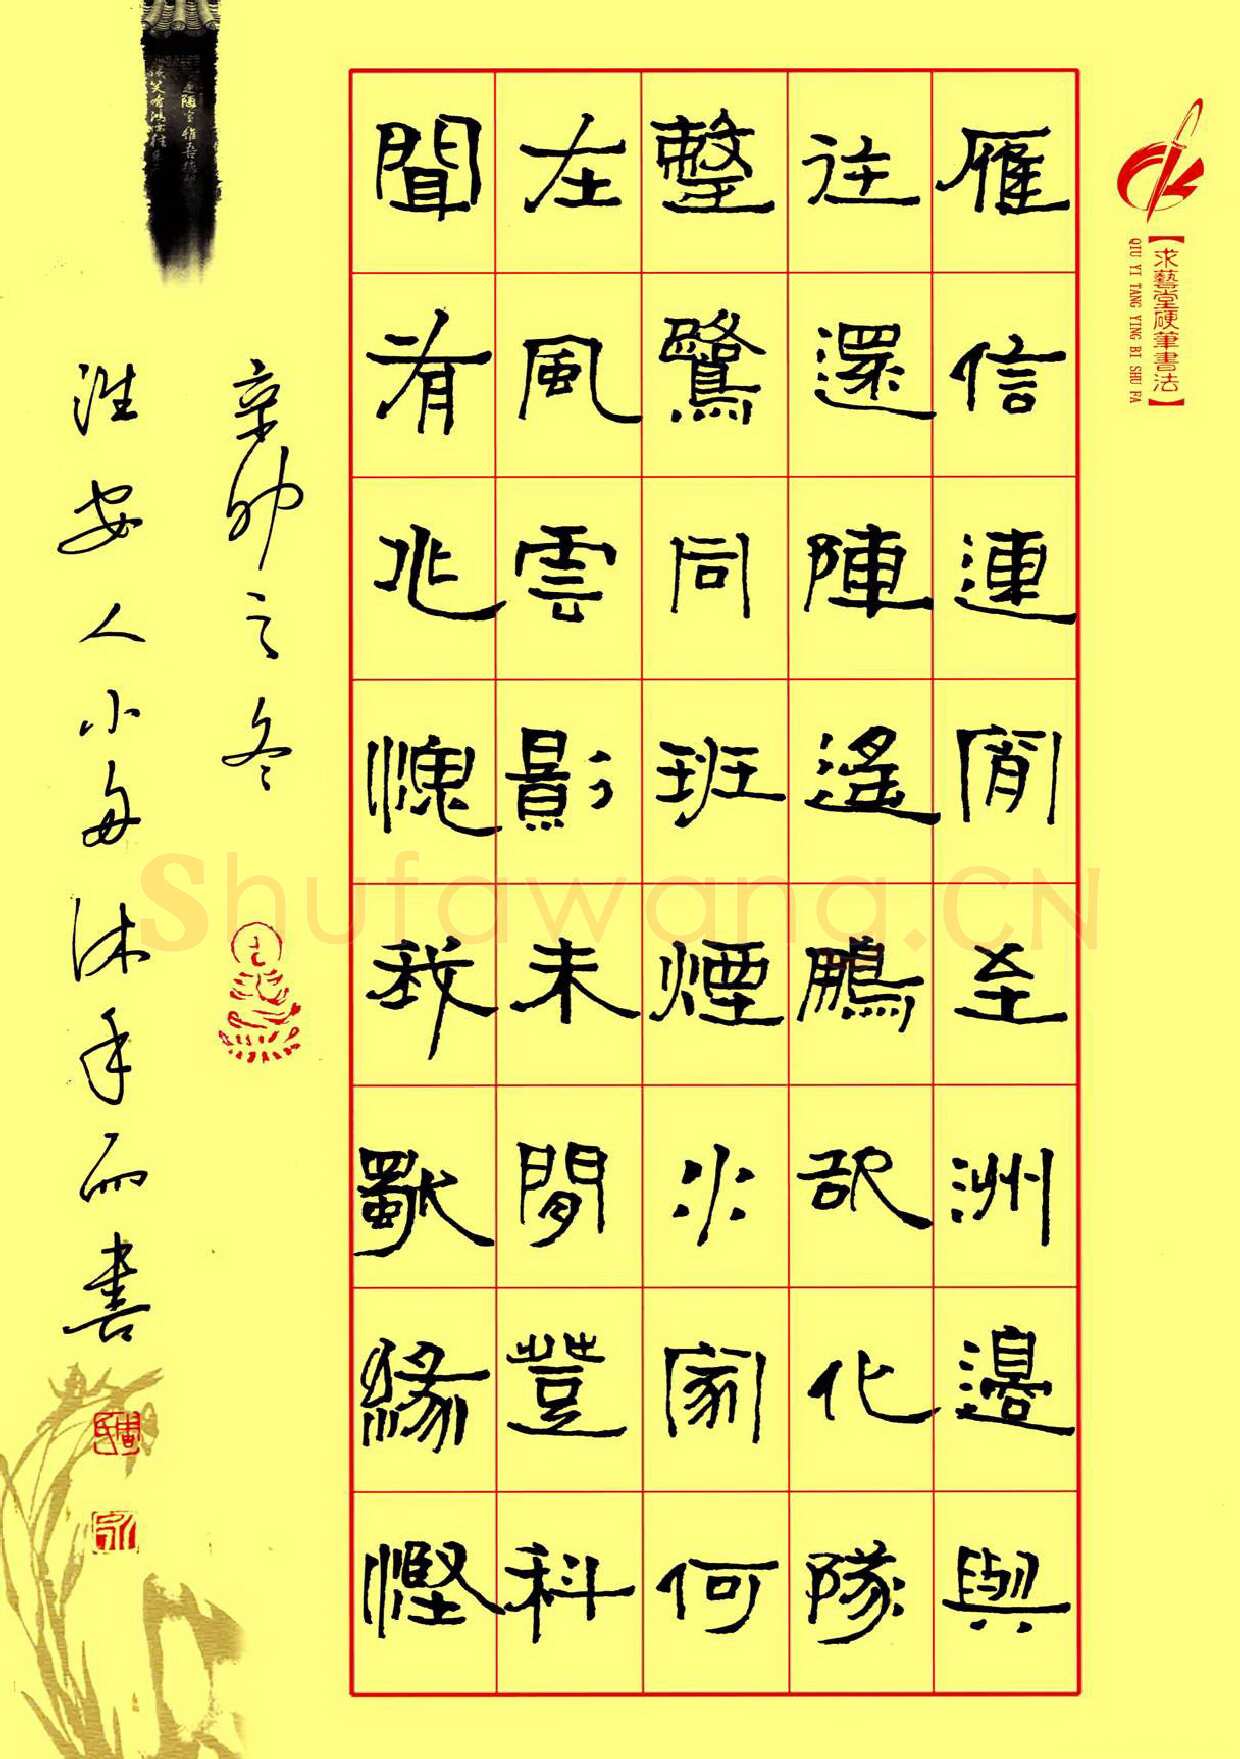 【求藝堂硬筆書法】
QIU YI TANG YING BI SHU FA
雁信連宵至洲邊與
往還陣遙鵬欲化隊
整鷺同班煙火家何
在風雲影未閒豈科
聞有兆愧我獨緣慳
辛卯之冬
淮安人小每沐手而書
Shufawang.CN